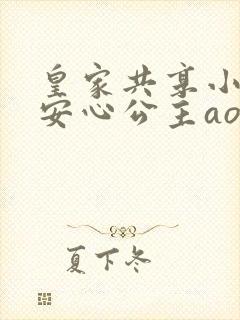 皇家共享小
安心公主ao
夏下冬